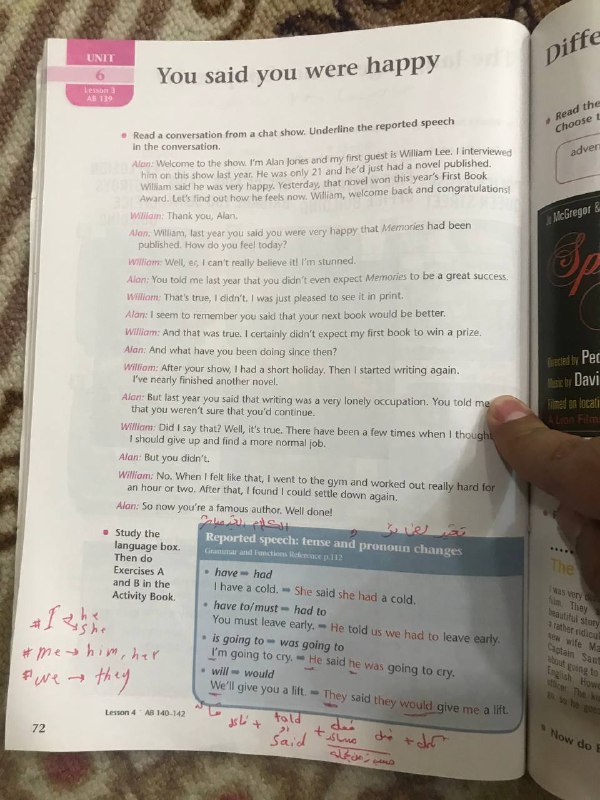 UNIT
6
Lesson 3
AB 139
You said you were happy
• Read a conversation from a chat show. Underline the reported speech
in the conversation.
Alan: Welcome to the show. I'm Alan Jones and my first guest is William Lee. I interviewed
him on this show last year. He was only 21 and he'd just had a novel published.
William said he was very happy. Yesterday, that novel won this year's First Book
Award. Let's find out how he feels now. William, welcome back and congratulations!
William: Thank you, Alan.
Alan: William, last year you said you were very happy that Memories had been
published. How do you feel today?
William: Well, er, I can't really believe it! I'm stunned.
Alan: You told me last year that you didn't even expect Memories to be a great success.
William: That's true, I didn't. I was just pleased to see it in print.
Alan: I seem to remember you said that your next book would be better.
William: And that was true. I certainly didn't expect my first book to win a prize.
Alan: And what have you been doing since then?
William: After your show, I had a short holiday. Then I started writing again.
I've nearly finished another novel.
Alan: But last year you said that writing was a very lonely occupation. You told me
that you weren't sure that you'd continue.
William: Did I say that? Well, it's true. There have been a few times when I thought
I should give up and find a more normal job.
Alan: But you didn't.
William: No. When I felt like that, I went to the gym and worked out really hard for
an hour or two. After that, I found I could settle down again.
Alan: So now you're a famous author. Well done!
• Study the
language box.
Then do
Exercises A
and B in the
Activity Book.
Reported speech: tense and pronoun changes
Grammar and Functions Reference p.112
• have ➡ had
I have a cold. ➡ She said she had a cold.
• have to/must ➡ had to
You must leave early. ➡ He told us we had to leave early.
• is going to ➡ was going to
I'm going to cry. ➡ He said he was going to cry.
• will ➡ would
We'll give you a lift. ➡ They said they would give me a lift.
# I he
she
# me → him, her
# we → they
told
said
Lesson 4 AB 140–142
72
Diffe
• Read the
Choose t
adven
McGregor &
Sp
Directed by
Music by Davi
Filmed on locati
The
• Now do E